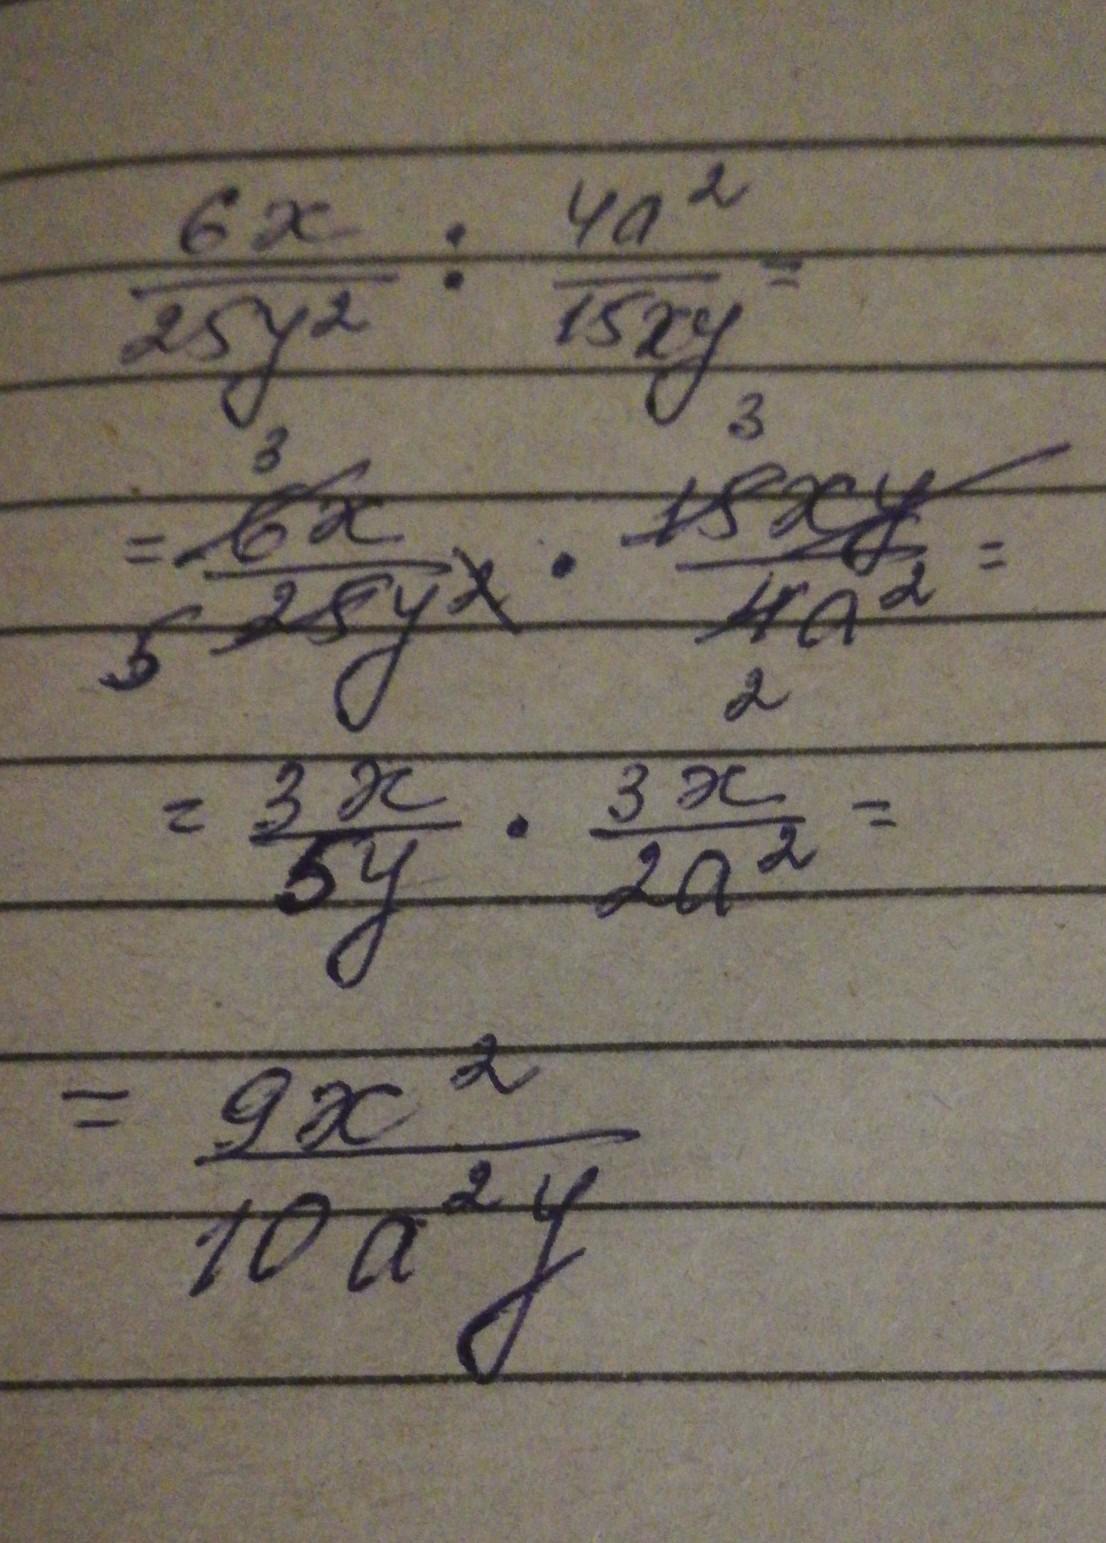 6x/25y² : 4a²/15xy =
= 6x/25y² · 15xy/4a² =
3 3 5 2
= 3x/5y · 3x/2a² =
= 9x²/10a²y